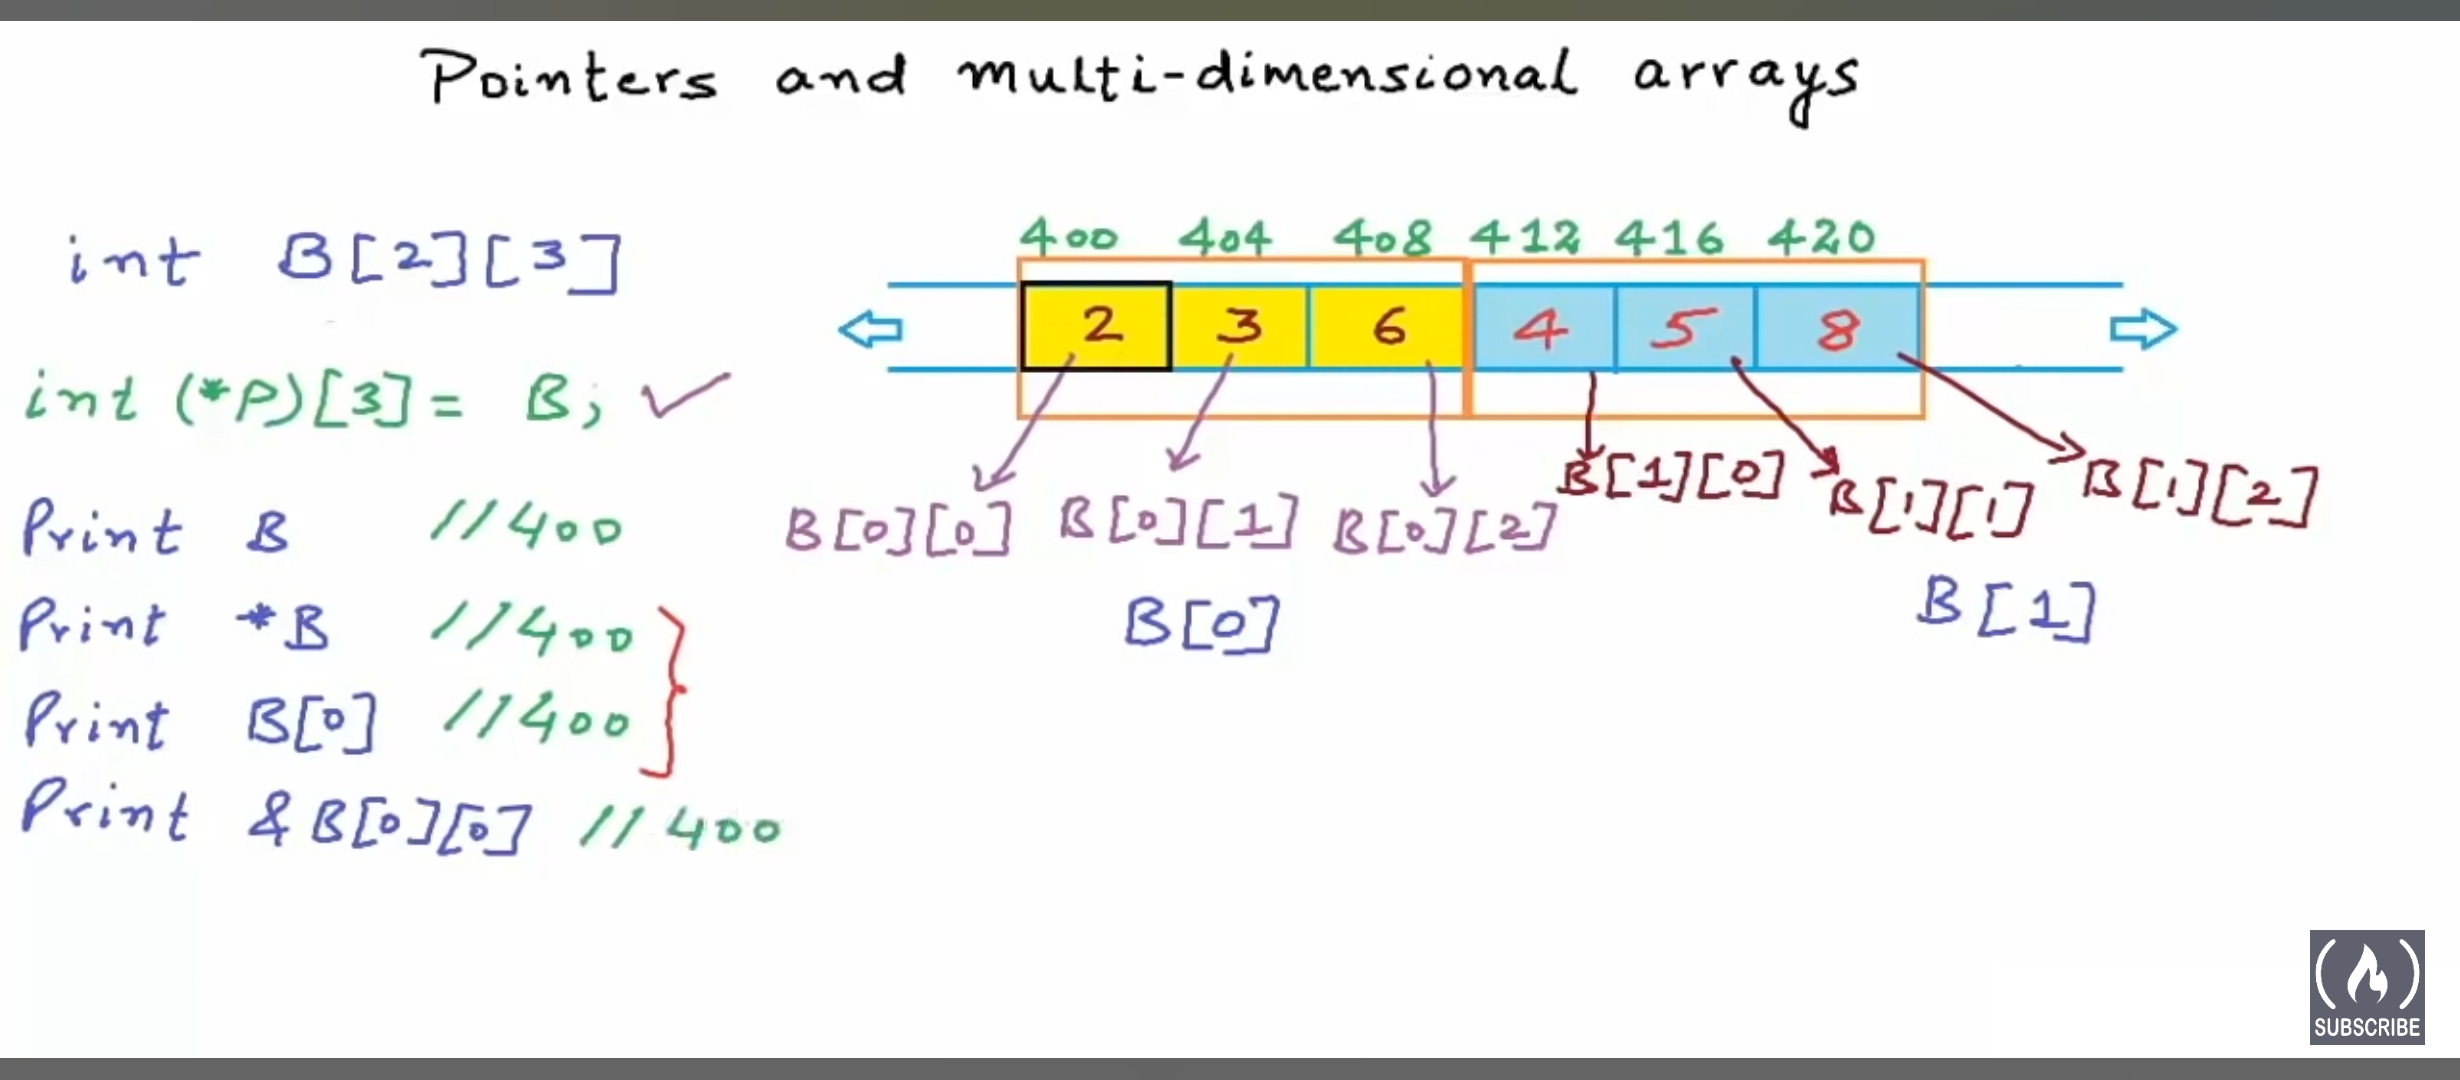 Pointers and multi-dimensional arrays
int B[2][3]
int (*P)[3] = B;
Print B //400
Print *B //400
Print B[0] //400
Print &B[0][0] //400
400 404 408 412 416 420
2 3 6 4 5 8
B[0][0] B[0][1] B[0][2] B[1][0] B[1][1] B[1][2]
B[0] B[1]
SUBSCRIBE